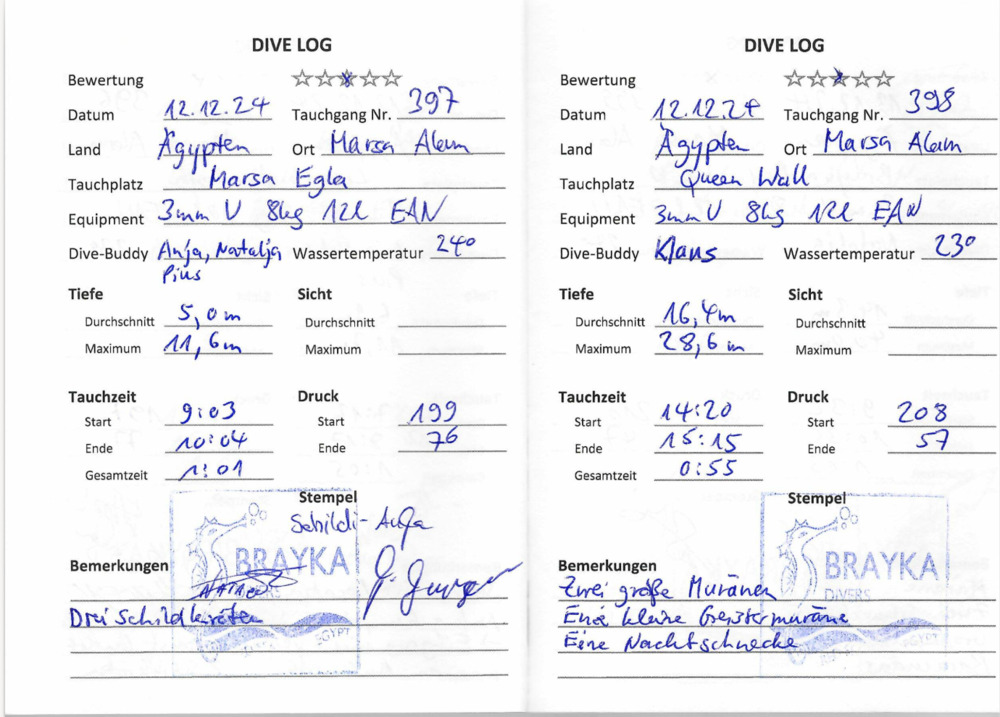 DIVE LOG
Bewertung
Datum 12.12.24 Tauchgang Nr. 397
Land Ägypten Ort Marsa Alam
Tauchplatz Marsa Egla
Equipment 3mm V 8kg 12l EAN
Dive-Buddy Anja, Natalja Wassertemperatur 24°
Pius
Tiefe Sicht
Durchschnitt 5,0m Durchschnitt
Maximum 11,6m Maximum
Tauchzeit Druck
Start 9:03 Start 199
Ende 10:04 Ende 76
Gesamtzeit 1:01
Stempel
Schildi-Anja
BRAYKA
Bemerkungen
DIVERS
Drei Schildkröten
EGYPT
DIVE LOG
Bewertung
Datum 12.12.24 Tauchgang Nr. 398
Land Ägypten Ort Marsa Alam
Tauchplatz Queen Wall
Equipment 3mm V 8kg 12l EAN
Dive-Buddy Klaus Wassertemperatur 23°
Tiefe Sicht
Durchschnitt 16,4m Durchschnitt
Maximum 28,6m Maximum
Tauchzeit Druck
Start 14:20 Start 208
Ende 15:15 Ende 57
Gesamtzeit 0:55
Stempel
BRAYKA
Bemerkungen
DIVERS
Zwei große Muränen
Eine kleine Geistermuräne
Eine Nachtschnecke
EGYPT